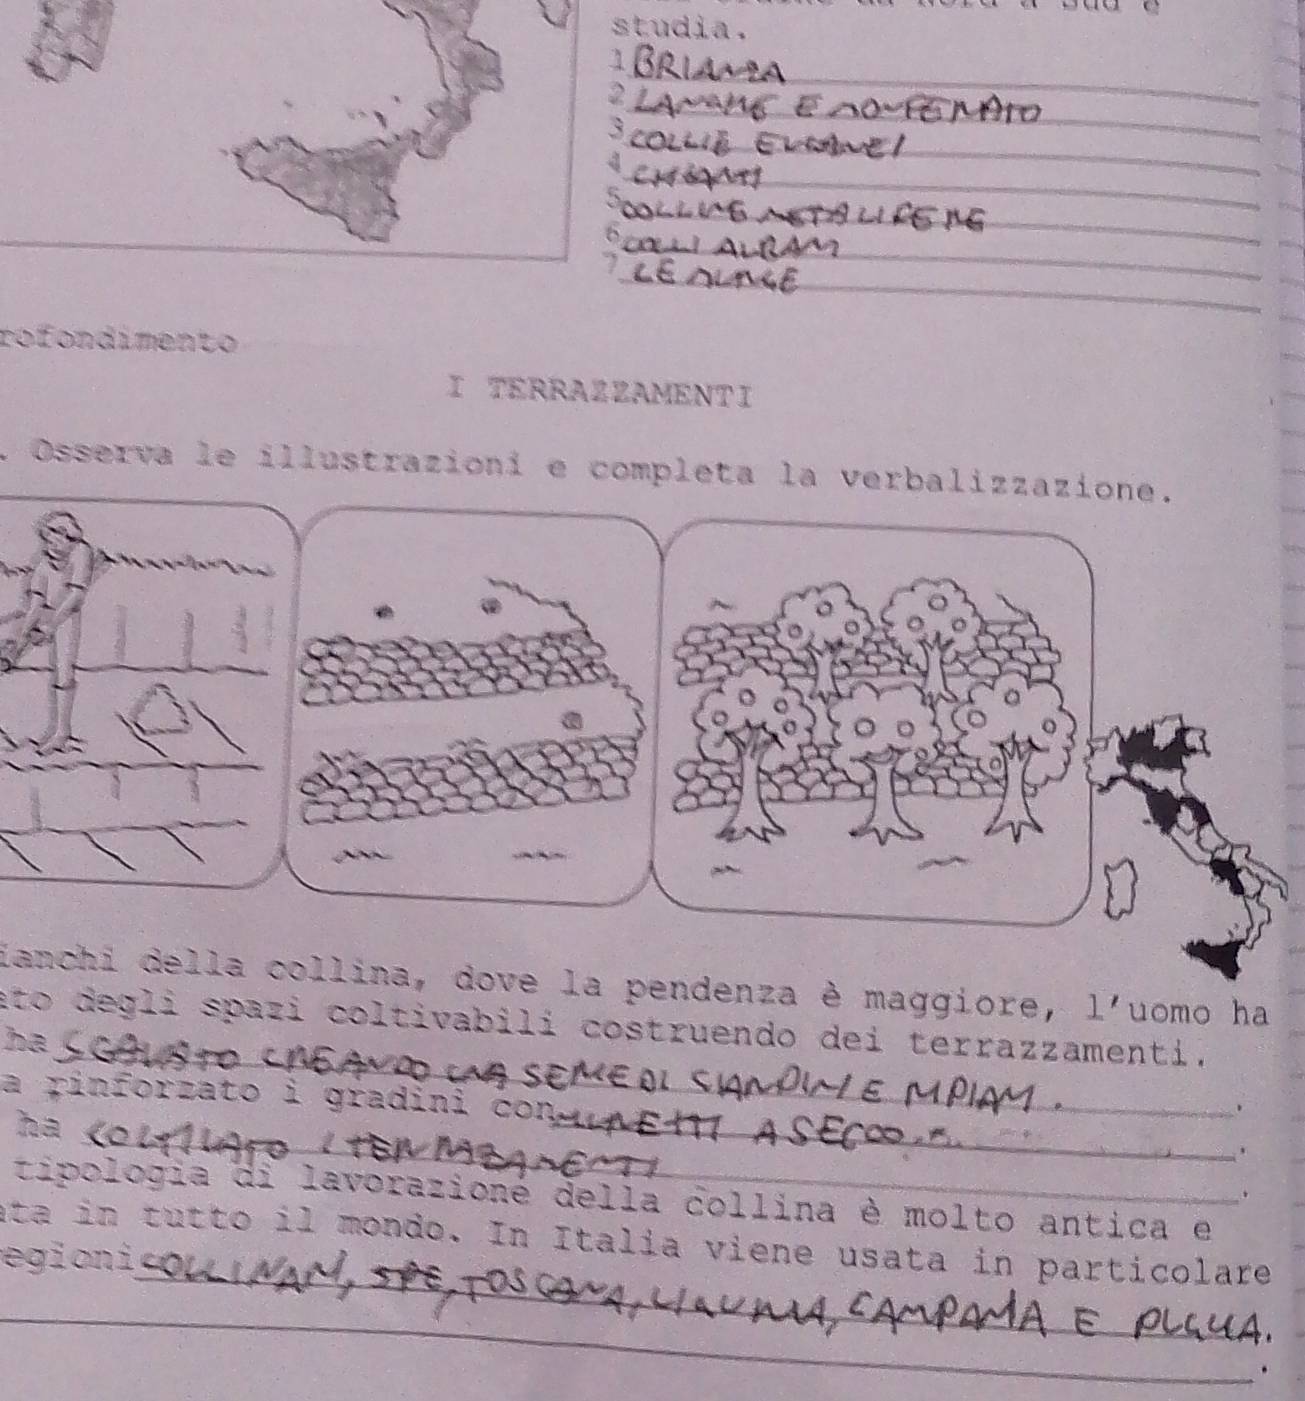 studia.
1 BRIANZA
2 LANGHE E MONFERRATO
3 COLLIE EUGANEI
4 CHIANTI
5 COLLINE METALLIFERE
6 COLLI ALBANI
7 LE MURGE
rofondimento
I TERRAZZAMENTI
. Osserva le illustrazioni e completa la verbalizzazione.
ianchi della collina, dove la pendenza è maggiore, l'uomo ha
ato degli spazi coltivabili costruendo dei terrazzamenti.
ha SCAVATO CREANDO UNA SERIE DI
a rinforzato i gradini con MURETTI A SECCO.
ha COLTIVATO I TERRAZZAMENTI
tipologia di lavorazione della collina è molto antica e
ata in tutto il mondo. In Italia viene usata in particolare
egioni COLLINARI, TOSCANA, LIGURIA, CAMPANIA E PUGLIA.